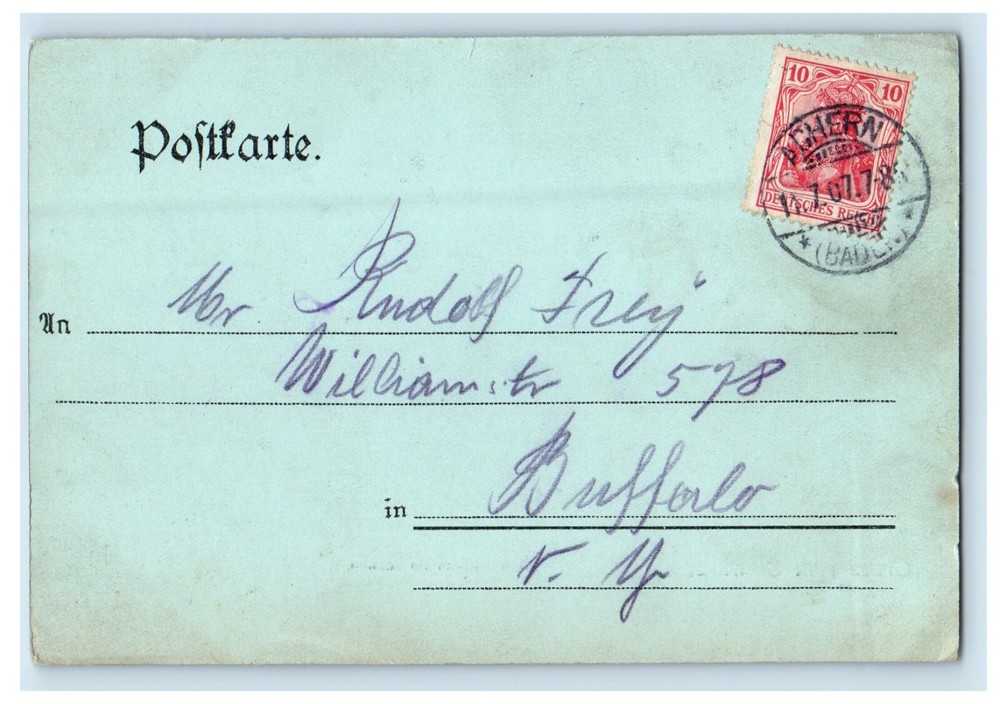 Postkarte.
10 10
DEUTSCHES REICH
ACHERN
7.07.7-8
(BADEN)
An Mr Rudolf Frey
Williamstr 578
in Buffalo
N. Y